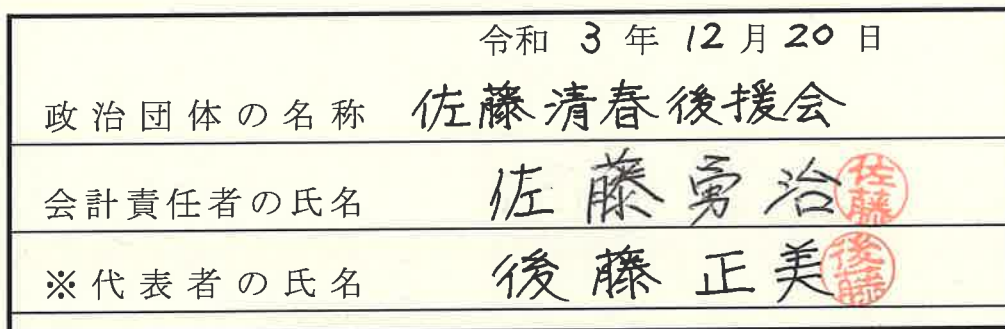 令和 3 年 12 月 20 日
政治団体の名称 佐藤清春後援会
会計責任者の氏名 佐藤勇治 佐藤
※代表者の氏名 後藤正美 後藤